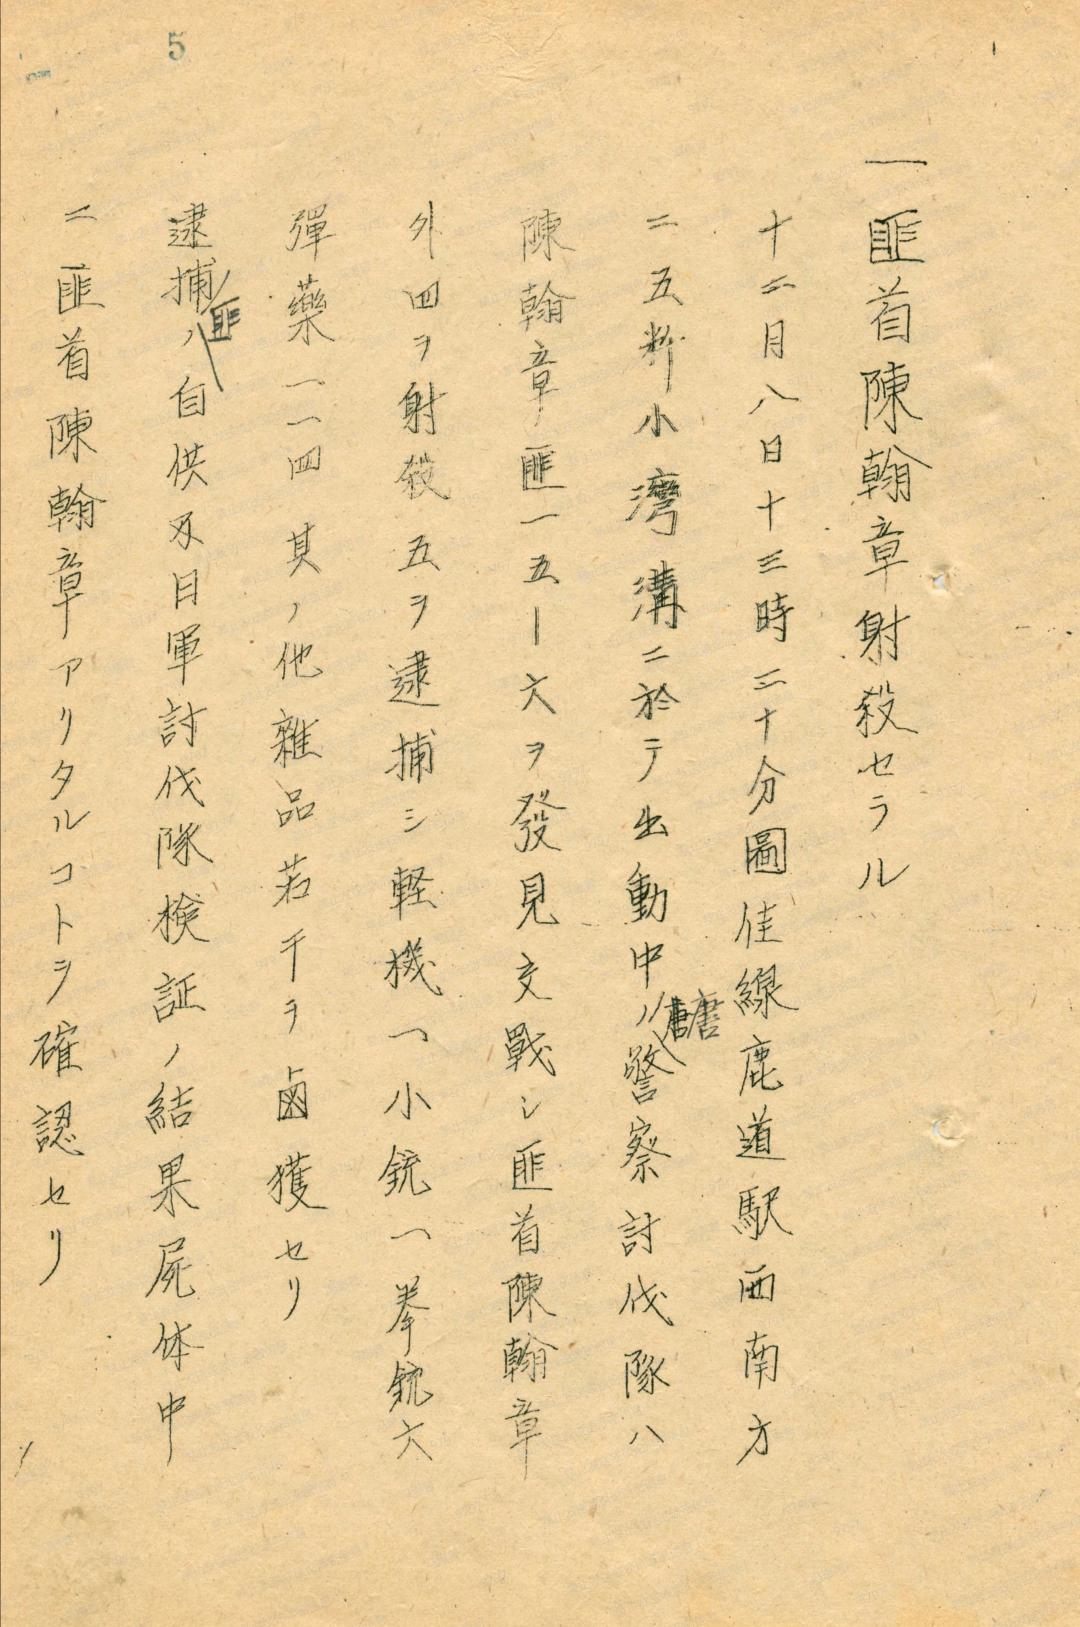 5
一 匪首陳翰章射殺セラル
十二月八日十三時三十分圖佳線鹿道駅西南方
二五粁小灣溝ニ於テ出動中ノ唐警察討伐隊ハ
陳翰章匪一五ー六ヲ發見交戰シ匪首陳翰章
外四ヲ射殺五ヲ逮捕シ軽機一小銃一拳銃六
彈藥一一四 其ノ他雜品若干ヲ鹵獲セリ
逮捕匪ハ自供及日軍討伐隊検証ノ結果屍体中
ニ匪首陳翰章アリタルコトヲ確認セリ